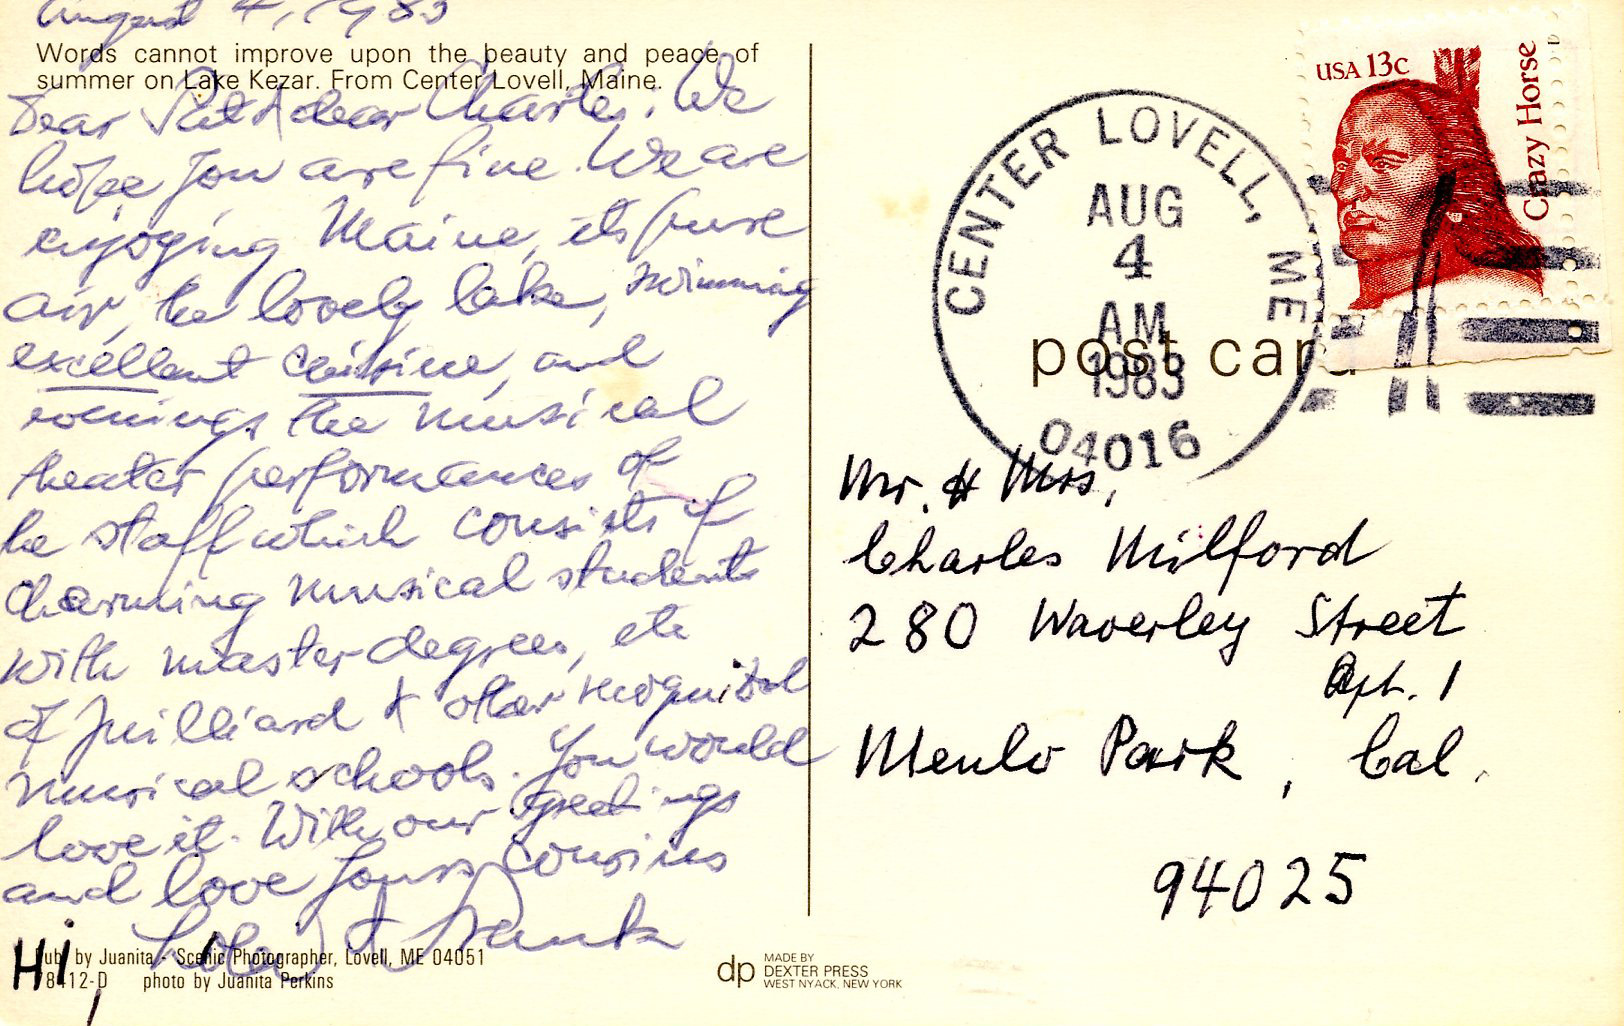 August 4, 1983
Words cannot improve upon the beauty and peace of
summer on Lake Kezar. From Center Lovell, Maine.
Dear Pat & dear Charles. We
hope you are fine. We are
enjoying Maine, its pure
air, the lovely lake, swimming
excellent cuisine, and
evenings the musical
theater performances of
the staff which consists of
charming musical students
with master degrees, etc
of Juilliard & other recognized
musical schools. You would
love it. With our greetings
and love Your cousins
& Frank
Hi,
Pub. by Juanita - Scenic Photographer, Lovell, ME 04051
78412-D photo by Juanita Perkins
dp
MADE BY
DEXTER PRESS
WEST NYACK, NEW YORK
USA 13c
Crazy Horse
CENTER LOVELL, ME
AUG
4
AM
1983
04016
post card
Mr. & Mrs,
Charles Milford
280 Waverley Street
Apt. 1
Menlo Park, Cal.
94025